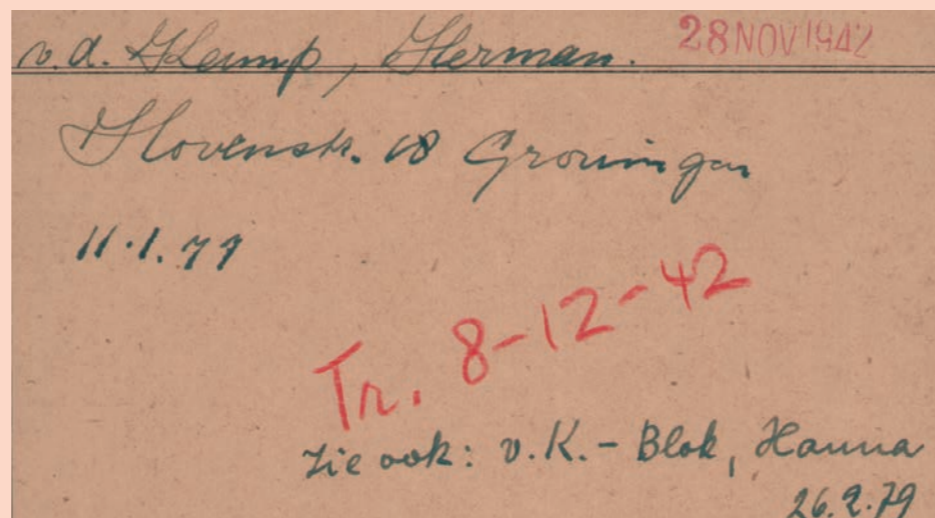 v.d. Kamp, Herman. 28 NOV 1942
Hovenstr. 18 Groningen
11.1.77
Tr. 8-12-42
Zie ook: v.K. - Blok, Hanna
26.2.79